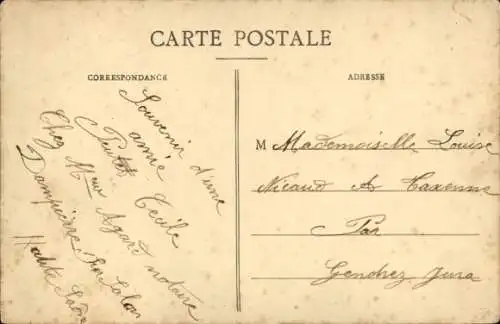 CARTE POSTALE
CORRESPONDANCE
ADRESSE
Souvenir d'une
amie Cécile
Chez Mr Agard notaire
Dampierre Sur Salon
Haute Saône
M Mademoiselle Louise
Nicaud A Taxenne
Par
Gendrez Jura